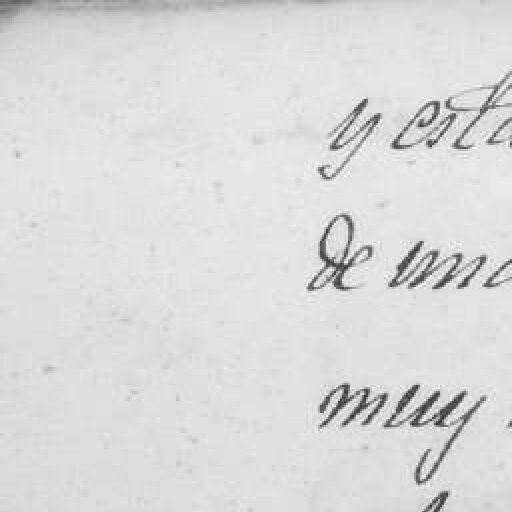 y esta
de una
muy